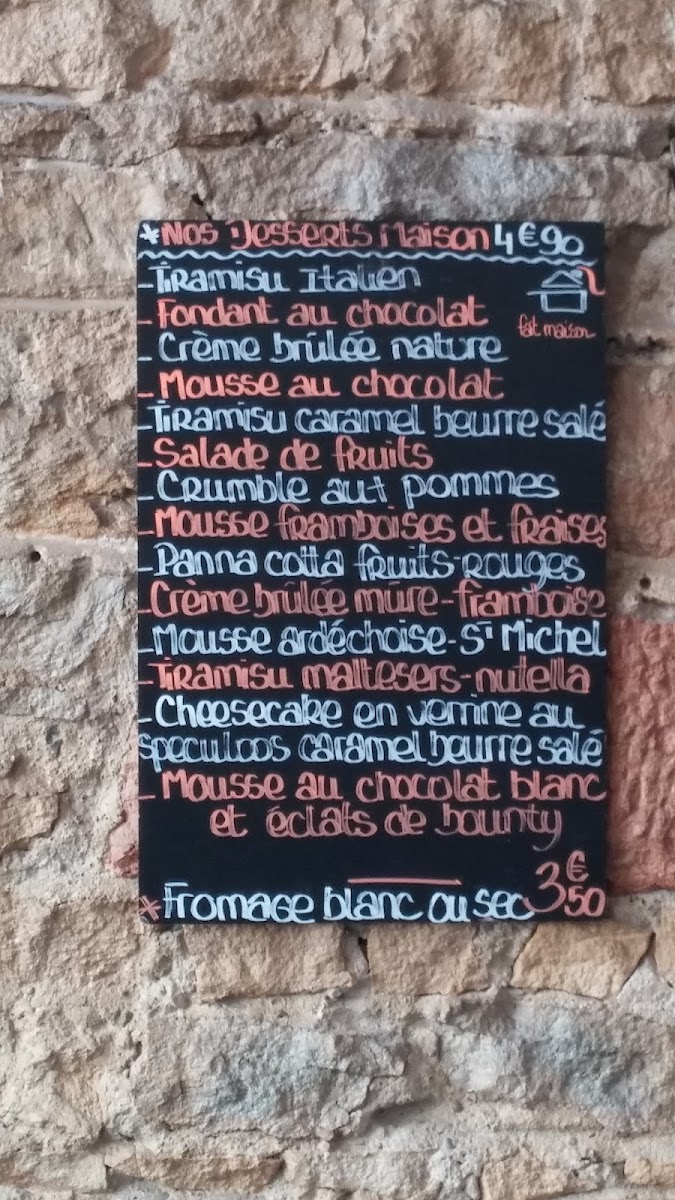 *Nos Desserts Maison 4€90
- Tiramisu Italien
- Fondant au chocolat
fait maison
- Crème brûlée nature
- Mousse au chocolat
- Tiramisu caramel beurre salé
- Salade de fruits
- Crumble aux pommes
- Mousse framboises et fraises
- Panna cotta fruits-rouges
- Crème brûlée mûre-framboise
- Mousse ardéchoise-St Michel
- Tiramisu maltesers-nutella
- Cheesecake en verrine au
speculoos caramel beurre salé
- Mousse au chocolat blanc
et éclats de bounty
*Fromage blanc ou sec 3€50